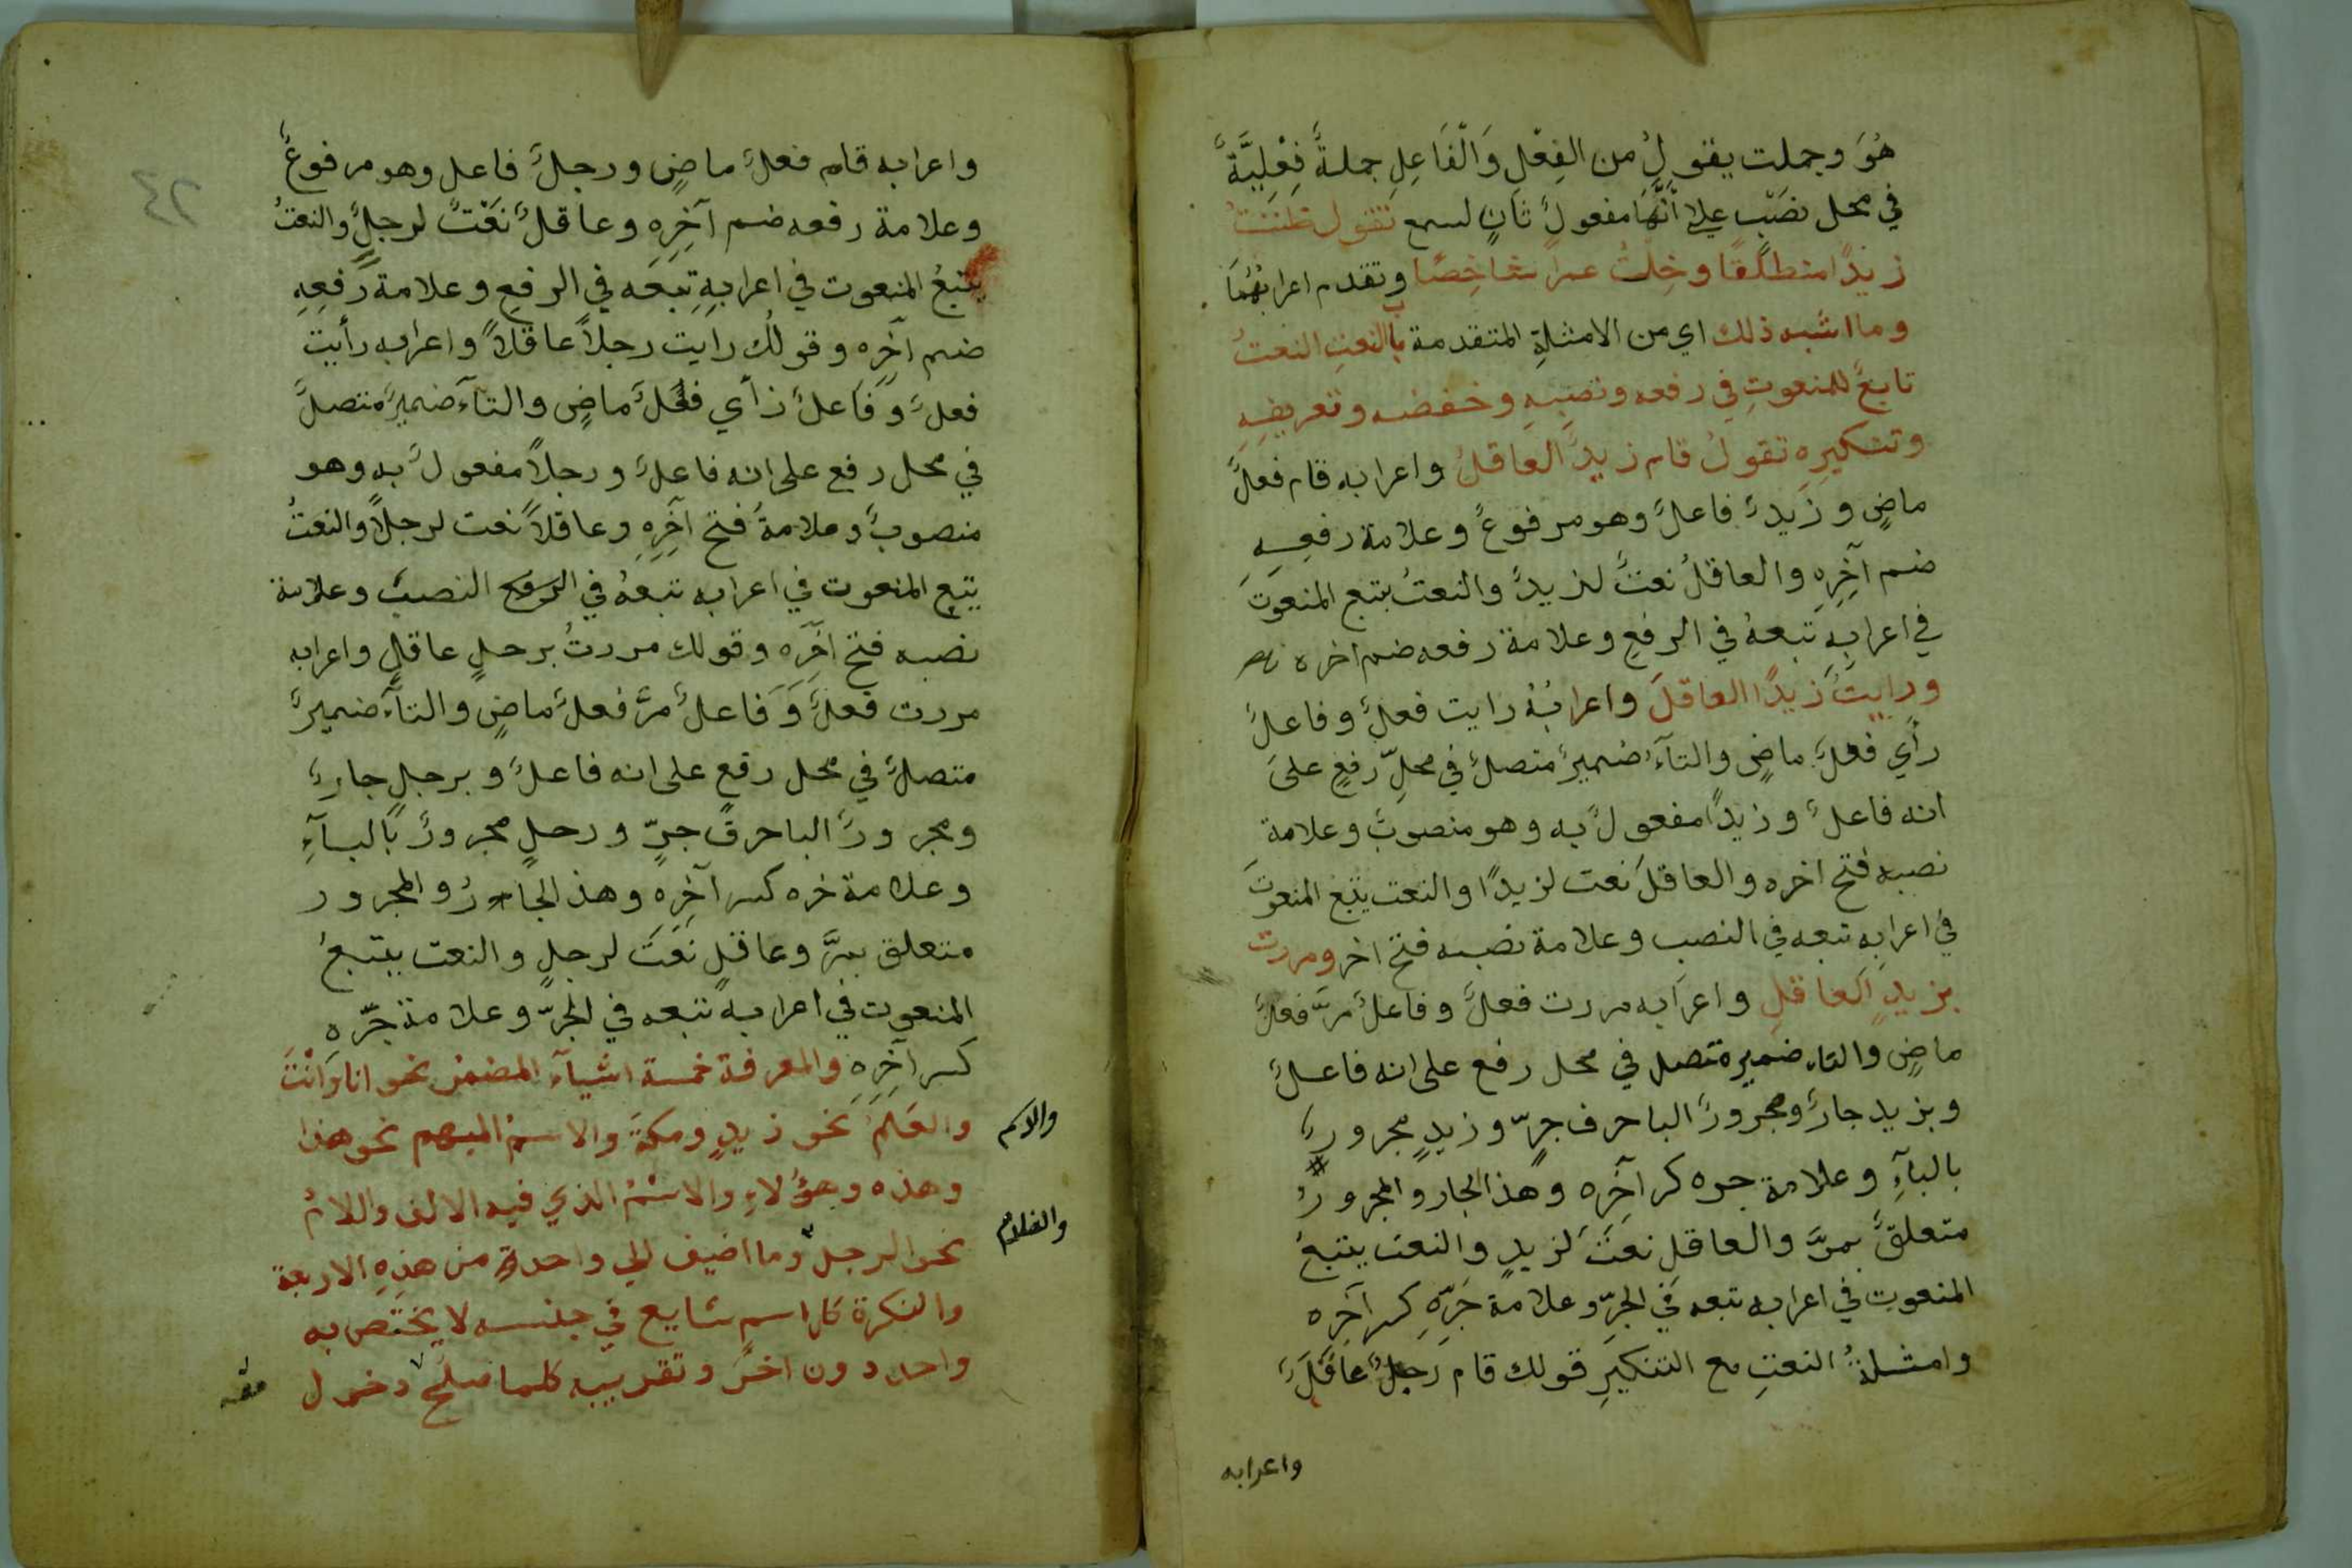 هُوَ وجملت يقولُ من الفِعْلِ وَالْفَاعِلِ جملةٌ فِعْلِيَّةٌ
في محل نَصْبٍ علي أنَّهَا مفعولٌ ثانٍ لسمع تقول ظننتُ
زيدًا منطلقًا وخِلْتُ عمرا شاخِصًا وتقدم اعرابُهُمَا
وما اشبه ذلك اي من الامثلةِ المتقدمة بابُ النعتِ النعتُ
تابعٌ للمنعوتِ في رفعه ونصبِهِ وخفضه وتعريفِهِ
وتنكيرِهِ تقولُ قام زيدٌ العاقلُ واعرابه قام فعلٌ
ماضٍ وزيدٌ فاعلٌ وهو مرفوعٌ وعلامة رفعِهِ
ضم آخِرِهِ والعاقلُ نعتٌ لزيدٌ والنعتُ يتبع المنعوتَ
في اعرابِهِ تبعهُ في الرفعِ وعلامة رفعه ضم اخره
ورايتُ زيدًا العاقلَ واعرابُهُ رايت فعلٌ وفاعلٌ
رأي فعلٌ ماضٍ والتآءُ ضميرٌ متصلٌ في محلِّ رفعٍ علىَ
انه فاعلٌ وزيدًا مفعولٌ به وهو منصوبٌ وعلامة
نصبه فتح اخره والعاقلَ نعت لزيدًا والنعت يتبع المنعوتَ
في اعرابِهِ تبعه في النصب وعلامة نصبه فتح اخر ومررت
بزيدٍ العاقلِ واعرابه مررت فعلٌ وفاعلٌ مرَّ فعلٌ
ماضٍ والتاء ضمير متصل في محل رفع على انه فاعلٌ
وبزيد جارٌ ومجرورٌ البا حرف جرٍّ وزيدٍ مجرورٌ
بالبآءِ وعلامة جره كر آخِره وهذ الجار والمجرورُ
متعلقٌ بمرَّ والعاقل نعتٌ لزيدٍ والنعت يتبعُ
المنعوت في اعرابه تبعه في الجرِّ وعلامة جَرِّهِ كسر آخِره
وامثلةُ النعتِ مع التنكيرِ قولك قام رَجلٌ عَاقلٌ
واعرابه
٤٢
واعرابه قام فعلٌ ماضٍ ورجلٌ فاعل وهو مرفوعٌ
وعلامة رفعه ضم آخِرِهِ وعاقلٌ نَعْتٌ لرجلٌ والنعتُ
يتبعُ المنعوت في اعرابِهِ تبعَه في الرفعِ وعلامة رَفعِهِ
ضم آخِره وقولُك رايت رجلاً عاقلاً واعرابه رأيت
فعلٌ وَفَاعلٌ رأي فعلٌ ماضٍ والتآء ضميرٌ متصلٌ
في محل رفع على انه فاعلٌ ورجلاً مفعولٌ به وهو
منصوبٌ وعلامةُ فتح آخِرِهِ وعاقلاً نعت لرجلاً والنعتُ
يتبع المنعوت في اعرابه تبعهُ في النصب وعلامة
نصبه فتح اخِرَه وقولك مررتُ برجلٍ عاقلٍ واعرابه
مررت فعلٌ وَفَاعلٌ مرَّ فعلٌ ماضٍ والتآء ضميرٌ
متصلٌ في محل رفع على انه فاعلٌ وبرجلٍ جارٌ
ومجرورٌ البا حرف جرٍّ ورجلٍ مجرورٌ بالبآءِ
وعلامة خره كسر آخِرِه وهذ الجارُ والمجرور
متعلق بمرَّ وعاقلٍ نَعَت لرجلٍ والنعت يتبعُ
المنعوت في اعرابه تبعه في الجرِّ وعلامة جَرِّه
كسر آخِرِهِ والمعرفة خمسة اشيآء المضمرُ نحو انا وَانْتَ
والعَلَمُ نحو زيدٍ ومكةَ والاسمُ المبهم نحو هذا
وهذه وهؤلاءِ والاسْمُ الذي فيه الالف واللامُ
نحو الرجل وما اضيف الي واحدةٍ من هذِهِ الاربعة
والنكرة كل اسم شايع في جنسه لا يختَص به
واحد دون اخرَ وتقريبه كلما صلَح دخول
والاسم
والغلام